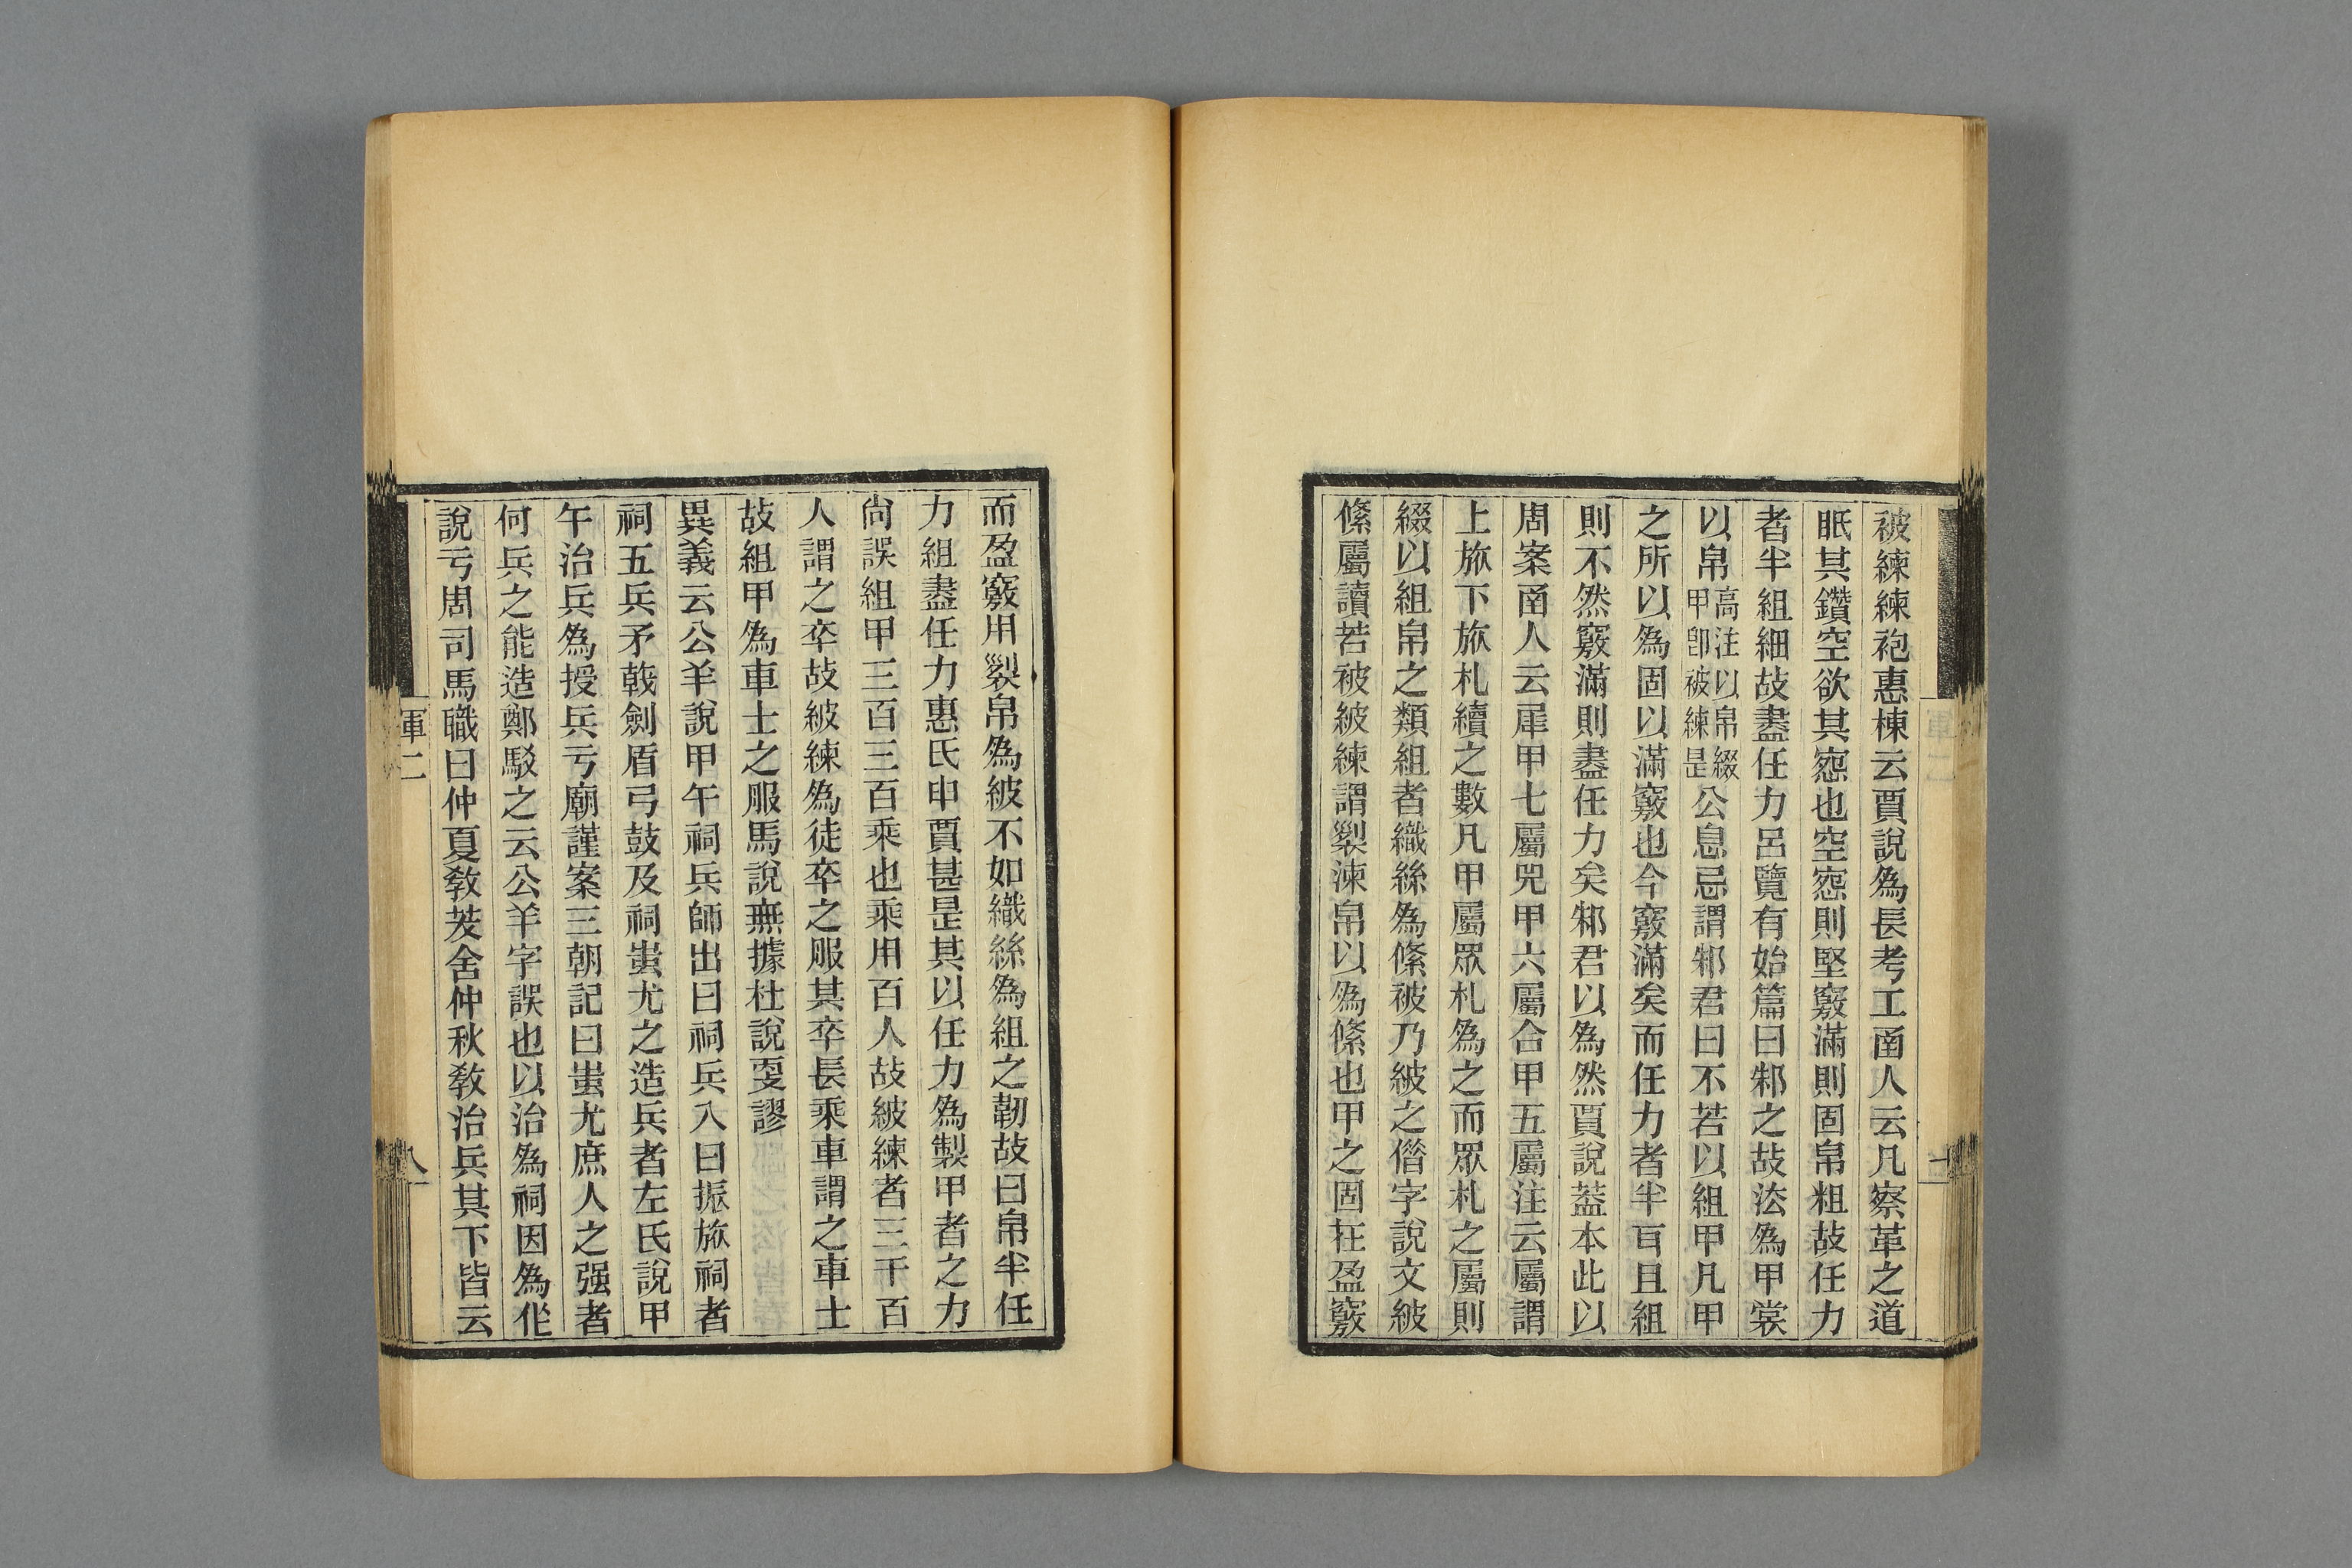 被練練袍惠棟云賈說爲長考工圅人云凡察革之道
眂其鑽空欲其窓也空窓則堅竅滿則固帛粗故任力
者半組細故盡任力呂覽有始篇曰邾之故法爲甲裳
以帛高注以帛綴甲卽被練是公息忌謂邾君曰不若以組甲凡甲
之所以爲固以滿竅也今竅滿矣而任力者半耳且組
則不然竅滿則盡任力矣邾君以爲然賈說葢本此以
周案圅人云犀甲七屬兕甲六屬合甲五屬注云屬謂
上旅下旅札續之數凡甲屬眾札爲之而眾札之屬則
綴以組帛之類組者織絲爲絛被乃紴之借字說文紴
絛屬讀若被紴練謂裂湅帛以爲絛也甲之固在盈竅
而盈竅用裂帛爲紴不如織絲爲組之韌故曰帛半任
力組盡任力惠氏申賈甚是其以任力爲製甲者之力
尙誤組甲三百三百乘也乘用百人故紴練者三千百
人謂之卒故紴練爲徒卒之服其卒長乘車謂之車士
故組甲爲車士之服馬說無據杜說更謬
異義云公羊說甲午祠兵師出曰祠兵入曰振旅祠者
祠五兵矛戟劍盾弓鼓及祠蚩尤之造兵者左氏說甲
午治兵爲授兵亏廟謹案三朝記曰蚩尤庶人之强者
何兵之能造鄭駁之云公羊字誤也以治爲祠因爲作
說亏周司馬職曰仲夏敎茇舍仲秋敎治兵其下皆云
軍二
八